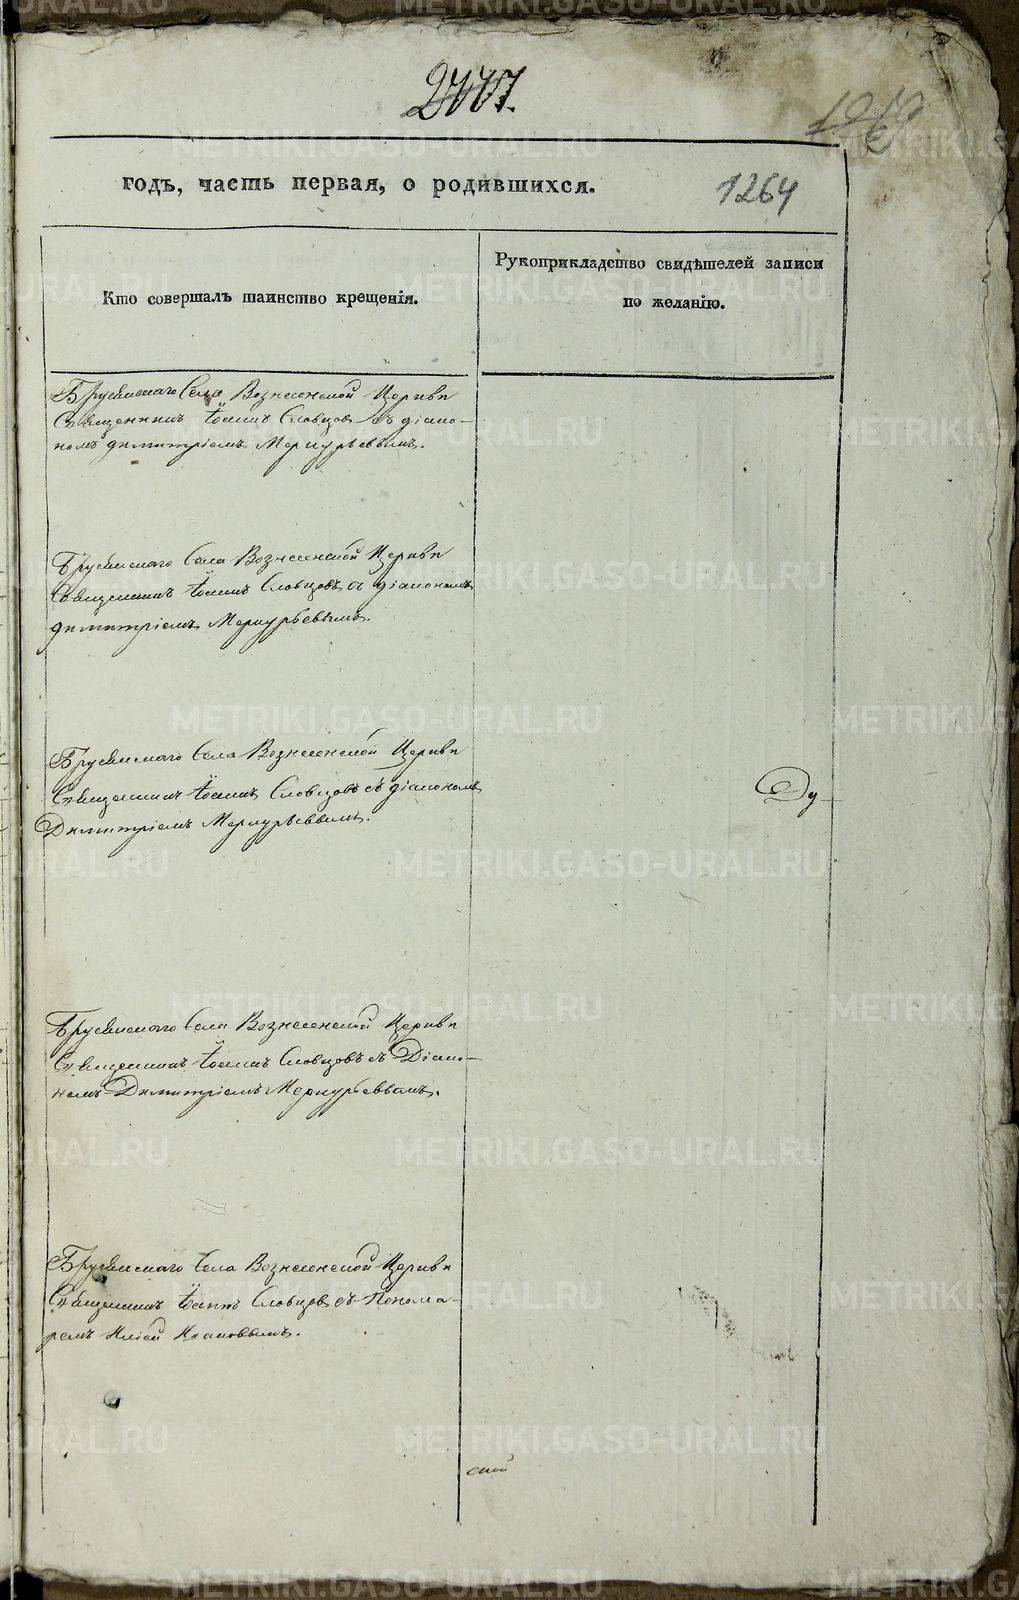 1264
годъ, часть первая, о родившихся.
Кто совершалъ таинство крещенія.
Рукоприкладство свидѣтелей записи
по желанію.
Бруснскаго Села Вознесенской Церкви
Священникъ Іоаннъ Словцов съ діако-
номъ Димитріемъ Меркурьевымъ.
Бруснскаго Села Вознесенской Церкви
Священникъ Іоаннъ Словцовъ съ діакономъ
Димитріемъ Меркурьевымъ.
Бруснскаго Села Вознесенской Церкви
Священникъ Іоаннъ Словцовъ съ діакономъ
Димитріемъ Меркурьевымъ.
Ду-
Бруснскаго Села Вознесенской Церкви
Священникъ Іоаннъ Словцовъ съ Діако-
номъ Димитріемъ Меркурьевымъ.
Бруснскаго Села Вознесенской Церкви
Священникъ Іоаннъ Словцов съ Понома-
ремъ Иліей
ской
METRIKI.GASO-URAL.RU